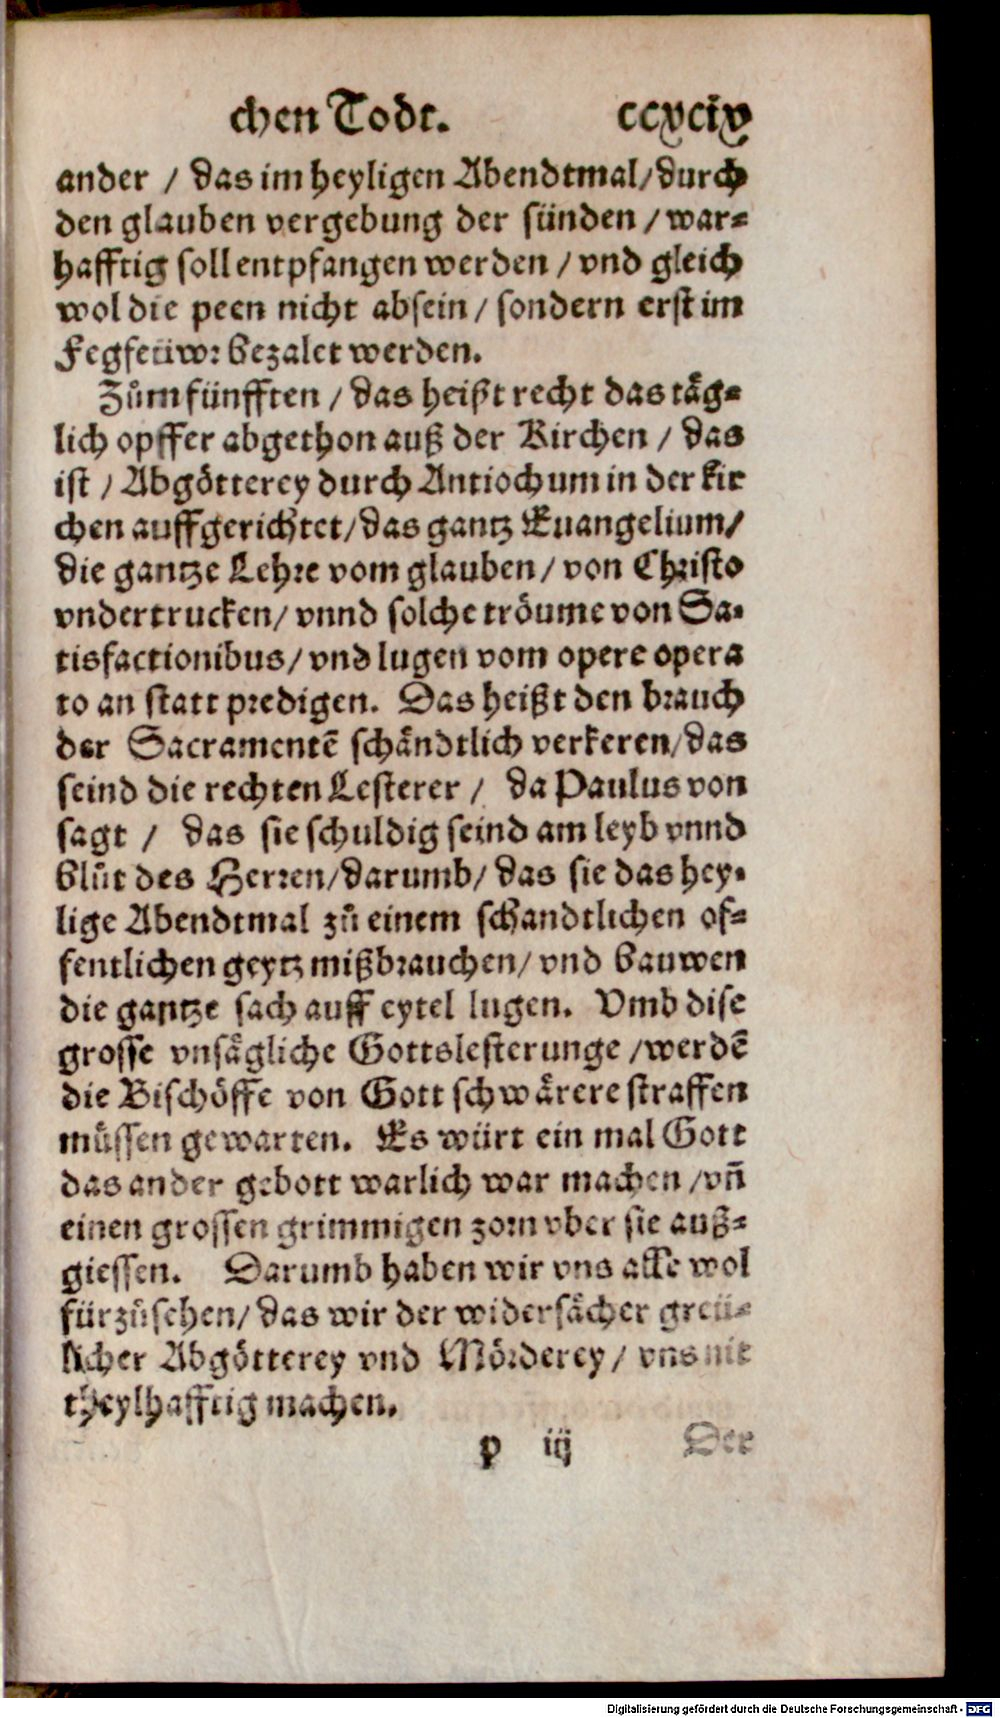 chen Todt. ccxcix
ander / das im heyligen Abendtmal/durch
den glauben vergebung der sünden / war⸗
hafftig soll entpfangen werden / vnd gleich
wol die peen nicht absein / sondern erst im
Fegfeüwr bezalet werden.
Zům fünfften / das heißt recht das täg⸗
lich opffer abgethon auß der Kirchen / das
ist / Abgötterey durch Antiochum in der kir
chen auffgerichtet/das gantz Euangelium/
die gantze Lehre vom glauben/ von Christo
vndertrucken/ vnnd solche tröume von Sa⸗
tisfactionibus/ vnd lugen vom opere opera
to an statt predigen. Das heißt den brauch
der Sacramentē schändtlich verkeren/das
seind die rechten Lesterer / da Paulus von
sagt / das sie schuldig seind am leyb vnnd
blůt des Herren/darumb/ das sie das hey⸗
lige Abendtmal zů einem schandtlichen of⸗
fentlichen geytz mißbrauchen/ vnd bauwen
die gantze sach auff eytel lugen. Vmb dise
grosse vnsägliche Gottslesterunge /werdē
die Bischöffe von Gott schwärere straffen
müssen gewarten. Es würt ein mal Gott
das ander gebott warlich war machen /vñ
einen grossen grimmigen zorn vber sie auß⸗
giessen. Darumb haben wir vns alle wol
fürzůsehen/ das wir der widersächer greü⸗
licher Abgötterey vnd Mörderey/ vns nit
theylhafftig machen.
p iij Der
Digitalisierung gefördert durch die Deutsche Forschungsgemeinschaft - DFG